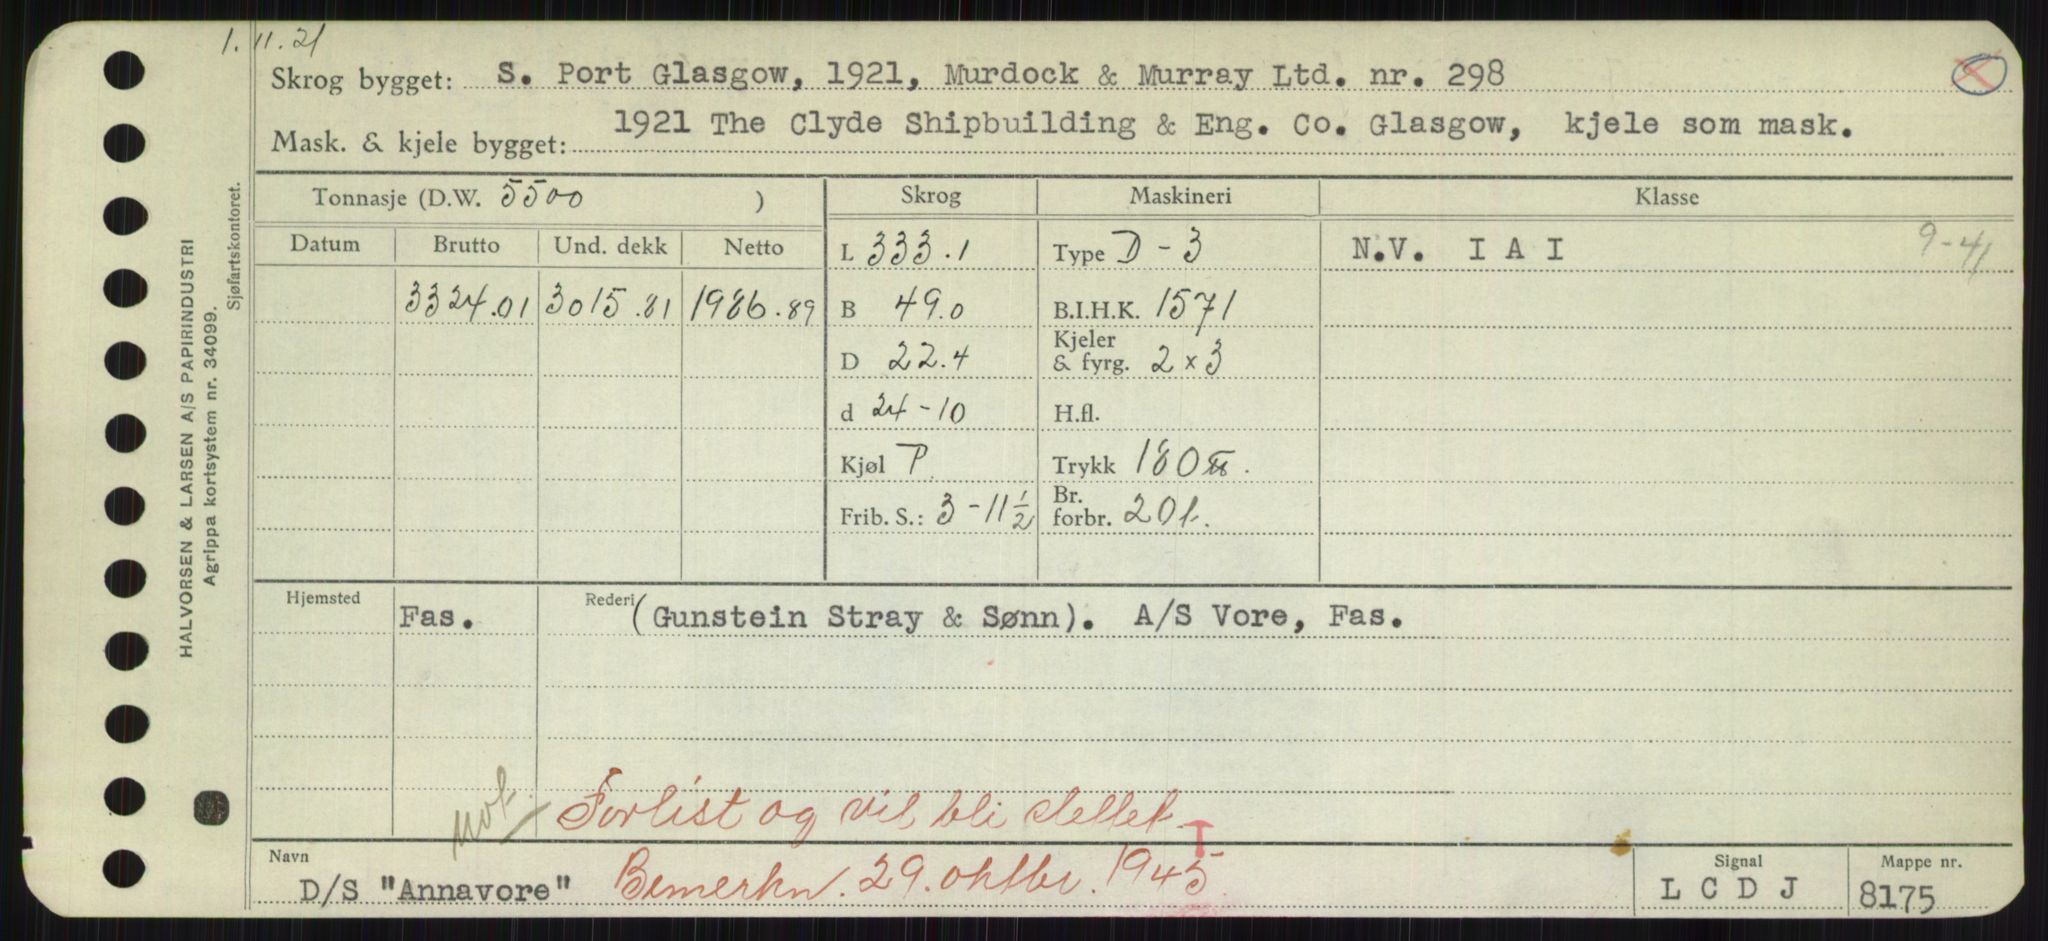 1.11.21
Skrog bygget: S. Port Glasgow, 1921, Murdock & Murray Ltd. nr. 298
Mask. & kjele bygget: 1921 The Clyde Shipbuilding & Eng. Co. Glasgow, kjele som mask.
Tonnasje (D.W. 5500 ) Skrog Maskineri Klasse
Datum Brutto Und. dekk Netto L 333.1 Type D - 3 N.V. I A I 9-41
3324.01 3015.81 1986.89 B 49.0 B.I.H.K. 1571
D 22.4 Kjeler & fyrg. 2 x 3
d 24-10 H.fl.
Kjøl P. Trykk 180 ℔.
Frib. S.: 3-11½ Br. forbr. 20 t.
Hjemsted Fas. Rederi (Gunstein Stray & Sønn). A/S Vore, Fas.
not. Forlist og vil bli slettet
Navn D/S "Annavore" Bemerkn. 29. oktbr. 1945. Signal L C D J Mappe nr. 8175
HALVORSEN & LARSEN A/S PAPIRINDUSTRI
Agrippa kortsystem nr. 34099.
Sjøfartskontoret.